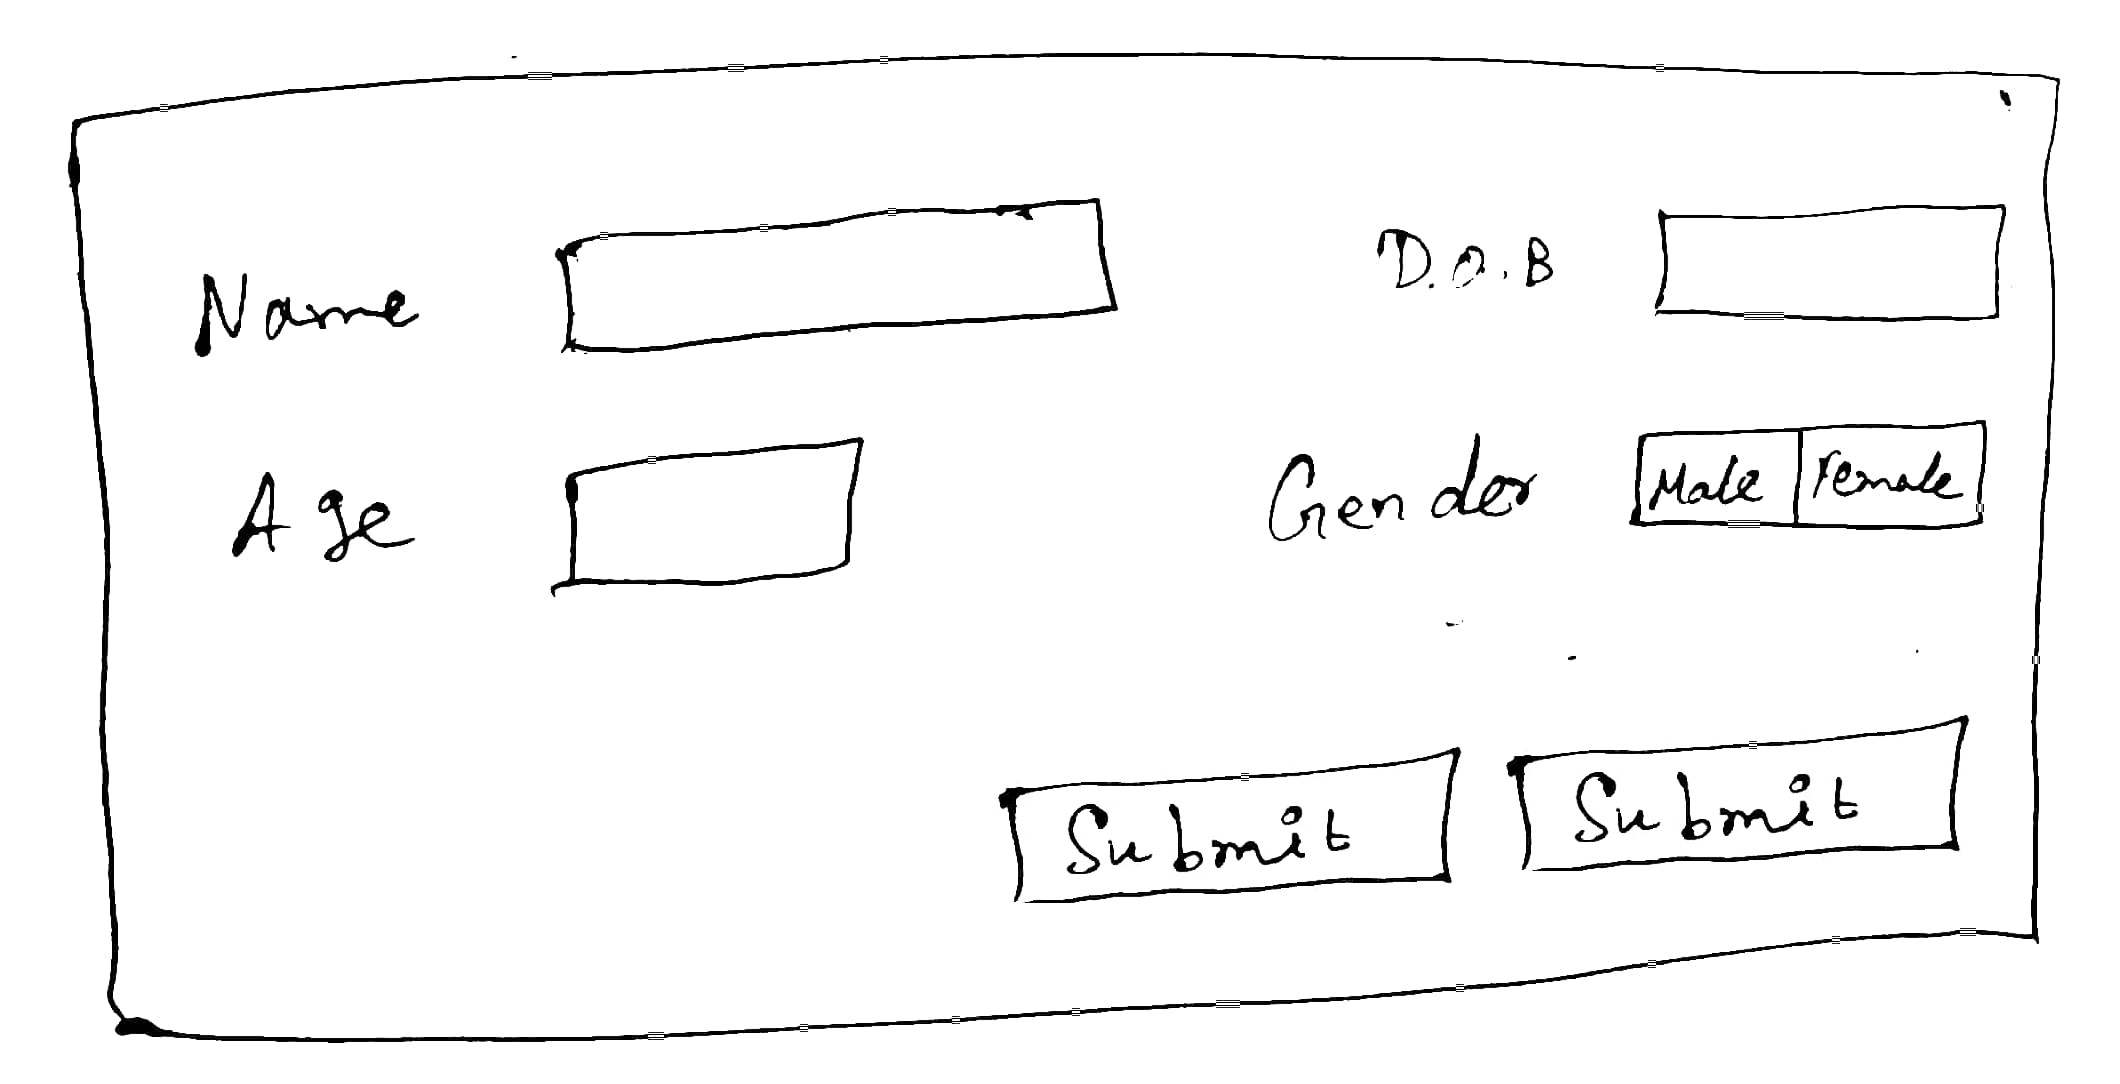 Name D.O.B
Age Gender Male Female
Submit Submit